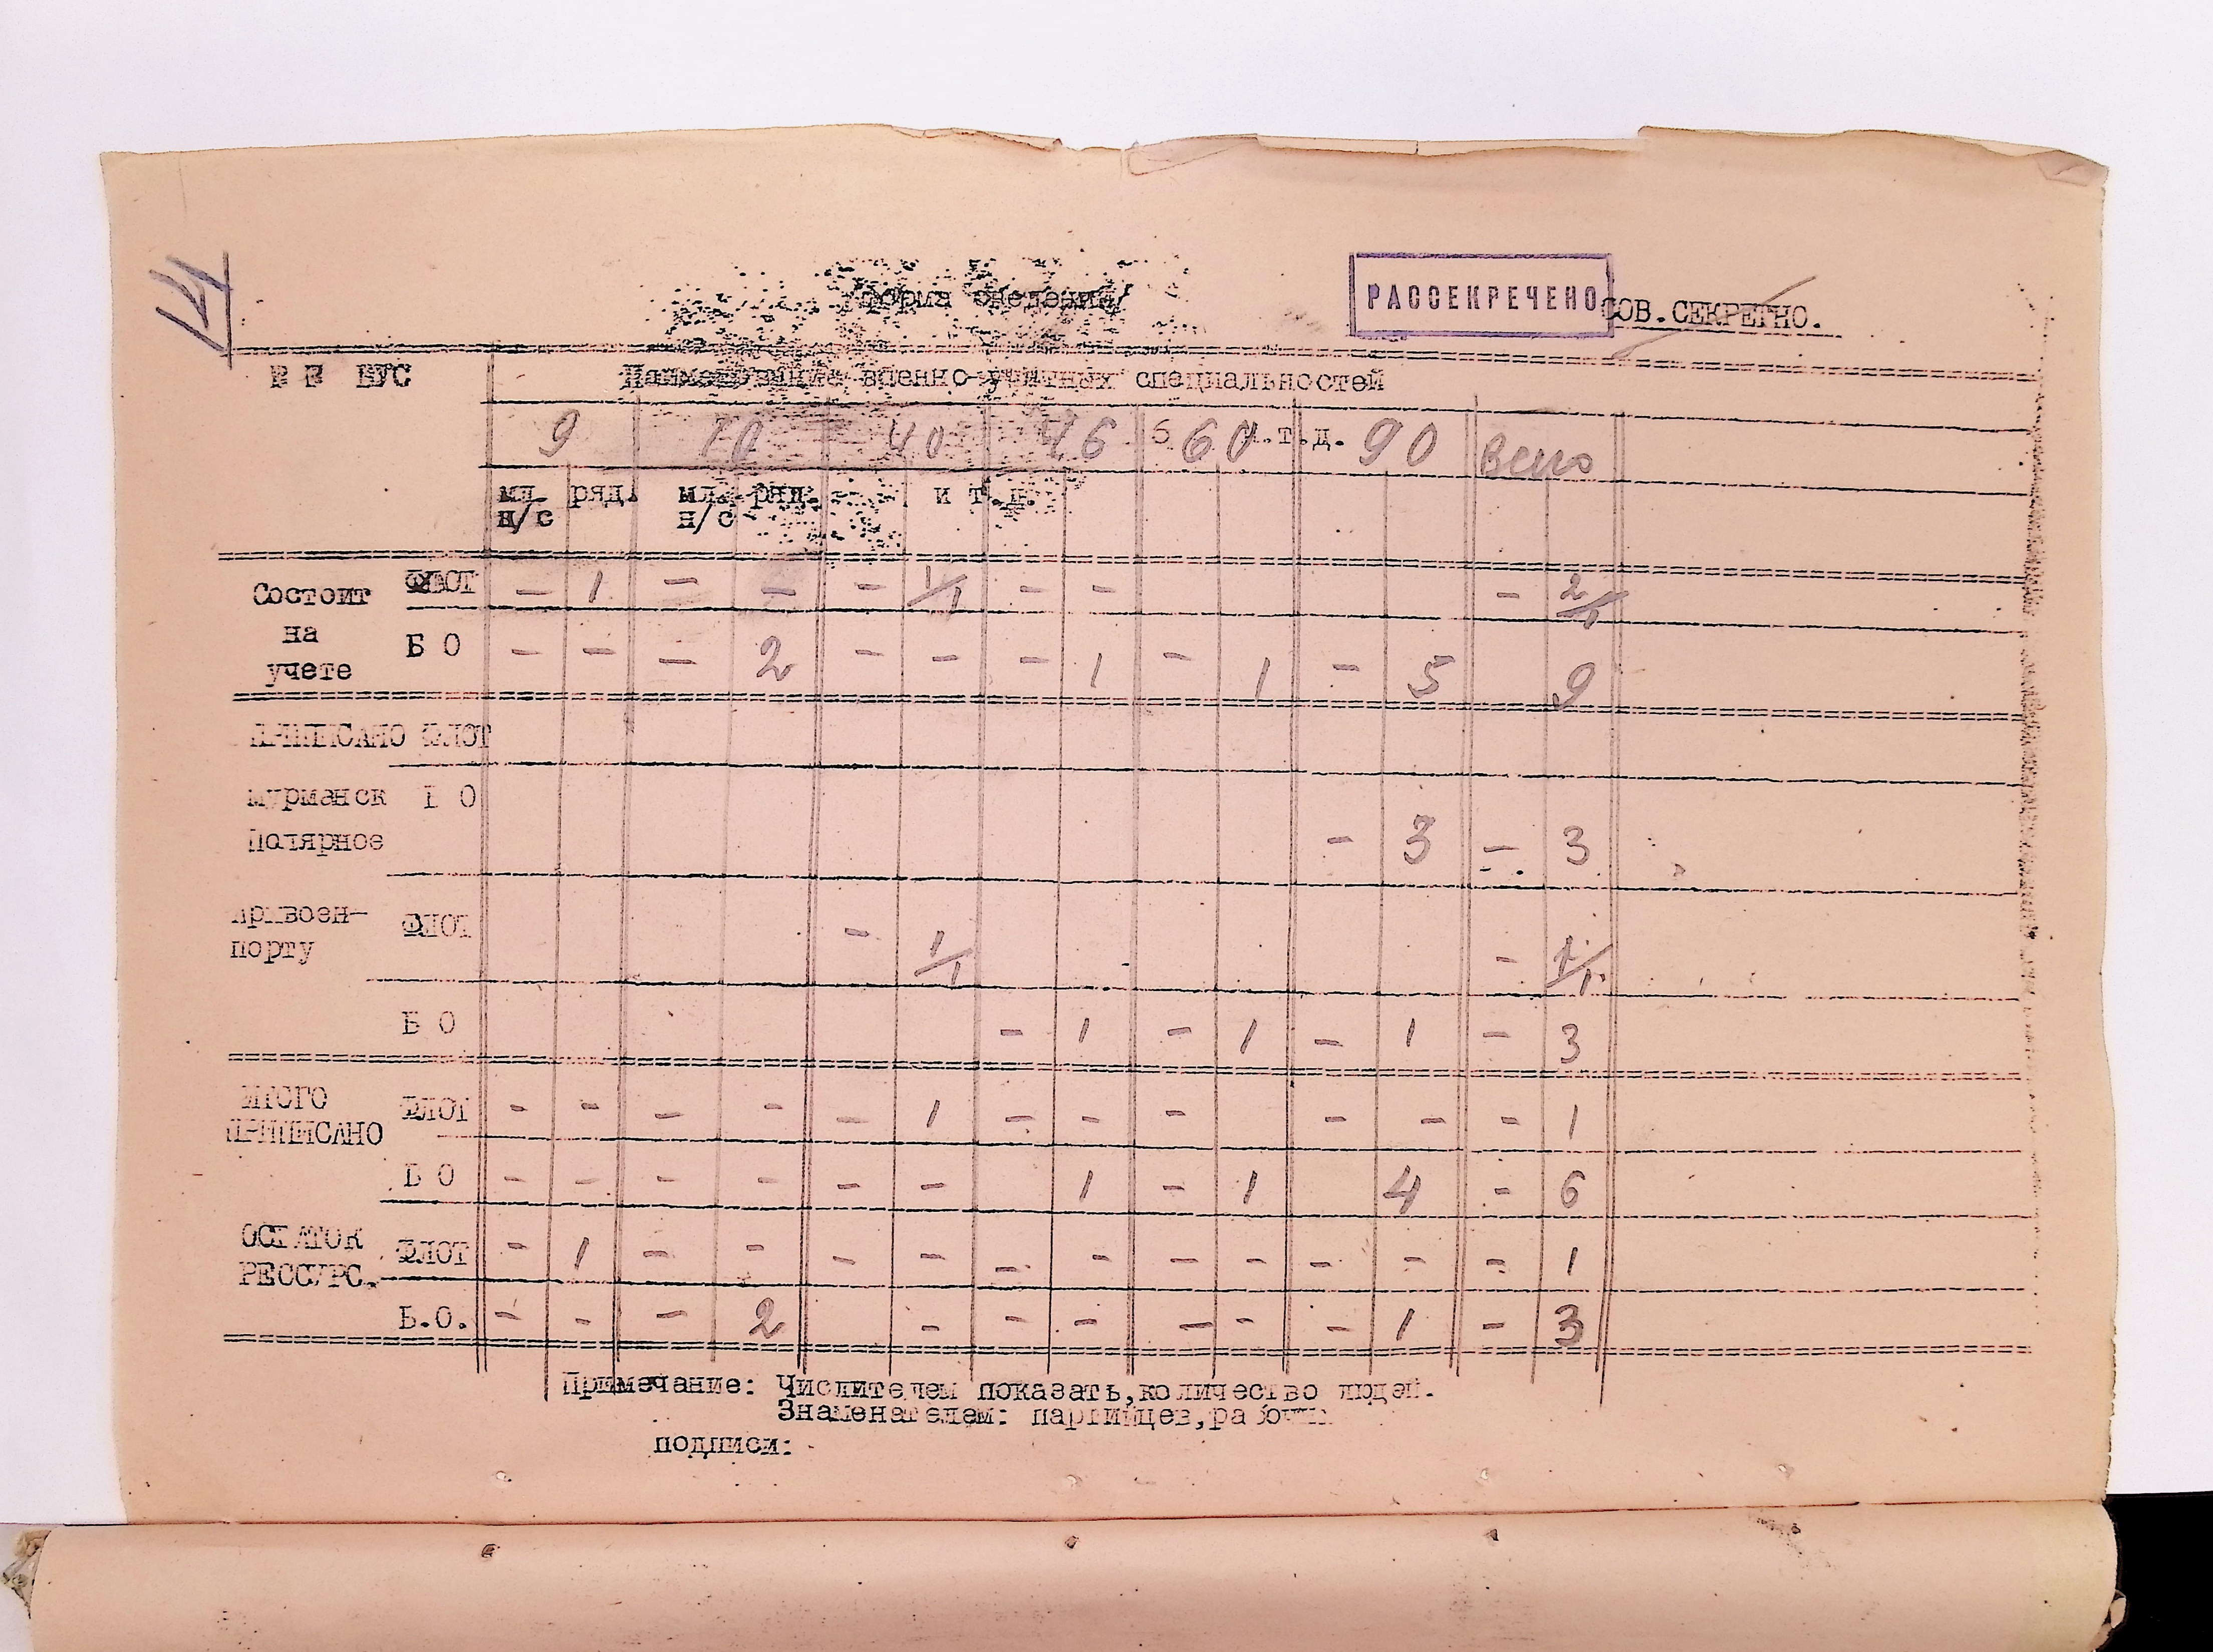 14
форма сведений/
РАССЕКРЕЧЕНО
СОВ.СЕКРЕТНО.
ВУС
Наименование военно-учетных специальностей
9 10 40 46 5 60 и.т.д. 90 всего
мл. н/с ряд. мл. н/с ряд. и т.д.
Состоит на учете ФЛОТ - 1 - - - 1/1 - - - 2/1
Б О - - - 2 - - - 1 - 1 - 5 9
ПРИПИСАНО ФЛОТ
Мурманск Б О
Полярное - 3 - 3
Привоен-
порту ФЛОТ - 1/1 - 1/1
Б О - 1 - 1 - 1 - 3
ИТОГО
ПРИПИСАНО ФЛОТ - - - - - 1 - - - - - - 1
Б О - - - - - - 1 - 1 4 - 6
ОСТАТОК
РЕССУРС. ФЛОТ - 1 - - - - - - - - - - - 1
Б.О. - - - 2 - - - - - - 1 - 3
Примечание: Числителем показать,количество людей.
Знаменателем: партийцев,рабочи
подписи: